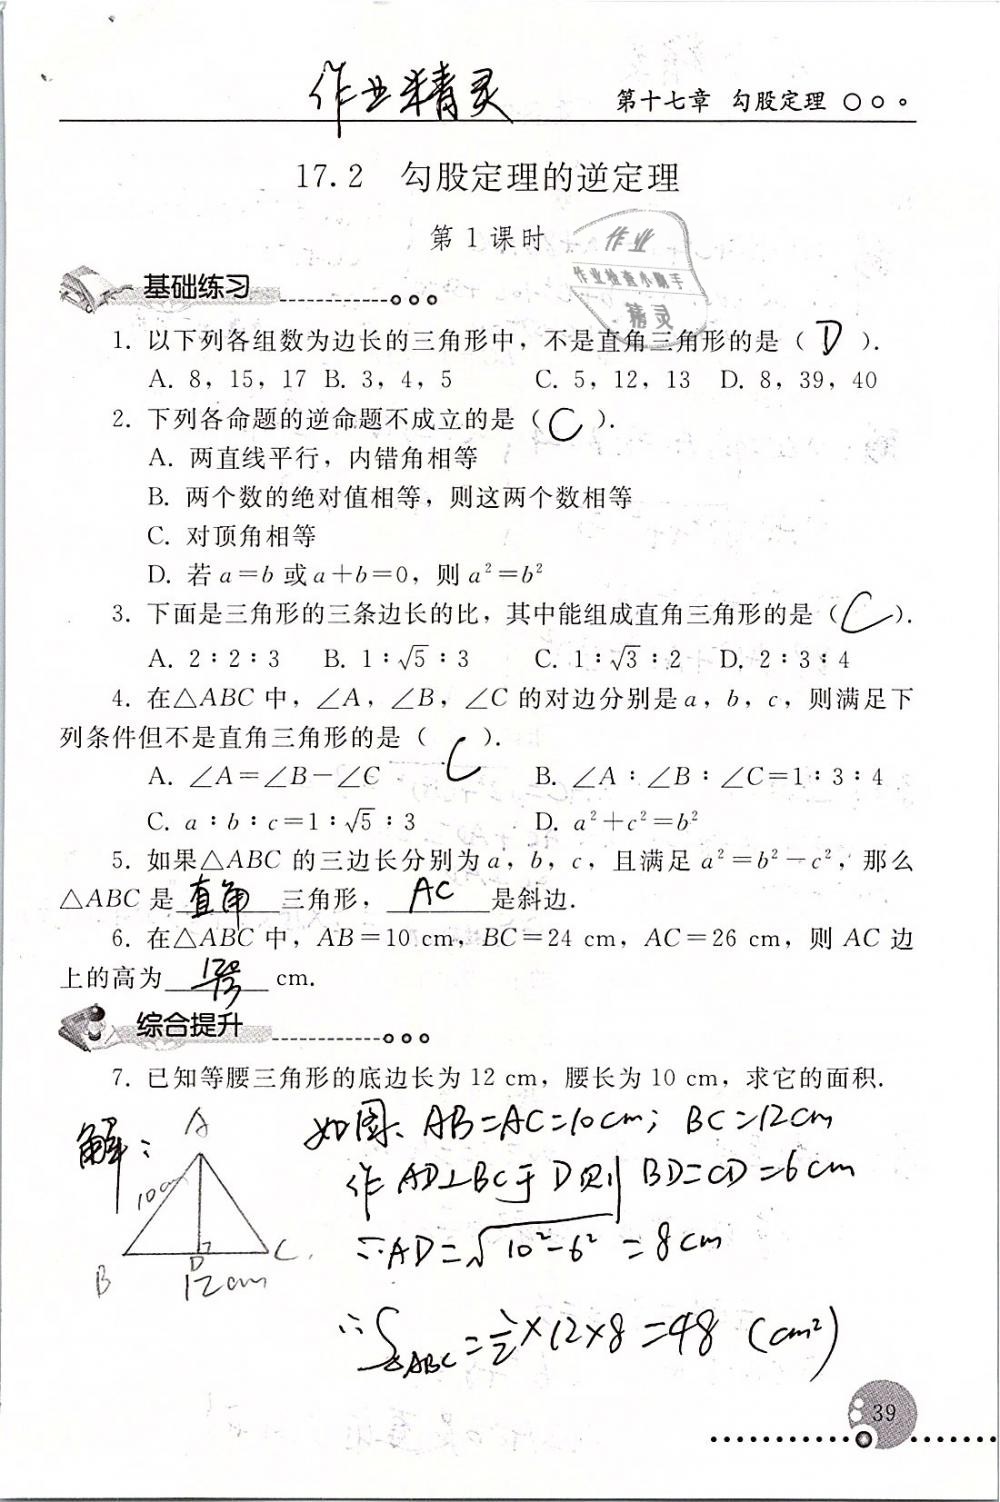 作业精灵
第十七章 勾股定理
17.2 勾股定理的逆定理
第1课时
作业
作业检查小助手
精灵
基础练习
1. 以下列各组数为边长的三角形中，不是直角三角形的是（D）.
A. 8，15，17 B. 3，4，5 C. 5，12，13 D. 8，39，40
2. 下列各命题的逆命题不成立的是（C）.
A. 两直线平行，内错角相等
B. 两个数的绝对值相等，则这两个数相等
C. 对顶角相等
D. 若a=b或a+b=0，则a²=b²
3. 下面是三角形的三条边长的比，其中能组成直角三角形的是（C）.
A. 2∶2∶3 B. 1∶√5∶3 C. 1∶√3∶2 D. 2∶3∶4
4. 在△ABC中，∠A，∠B，∠C的对边分别是a，b，c，则满足下
列条件但不是直角三角形的是（C）.
A. ∠A=∠B－∠C B. ∠A∶∠B∶∠C=1∶3∶4
C. a∶b∶c=1∶√5∶3 D. a²+c²=b²
5. 如果△ABC的三边长分别为a，b，c，且满足a²=b²－c²，那么
△ABC是 直角 三角形， AC 是斜边.
6. 在△ABC中，AB=10 cm，BC=24 cm，AC=26 cm，则AC边
上的高为 120/13 cm.
综合提升
7. 已知等腰三角形的底边长为12 cm，腰长为10 cm，求它的面积.
解：
A
10cm
B
D
C
12cm
如图、AB=AC=10cm；BC=12cm
作AD⊥BC于D则BD=CD=6cm
∴AD=√10²-6²=8cm
∴S△ABC=½×12×8=48（cm²）
39